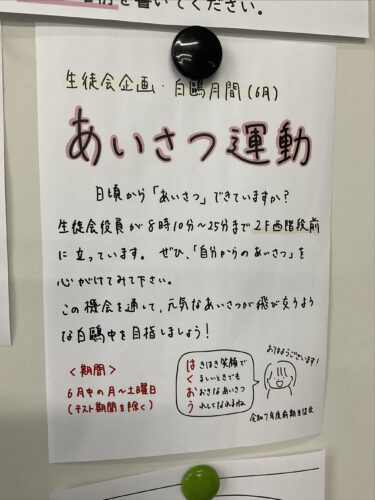 を書いてください。
生徒会企画・白鷗月間(6月)
あいさつ運動
日頃から「あいさつ」できていますか?
生徒会役員が8時10分~25分まで2F西階段前
に立っています。ぜひ、「自分からのあいさつ」を
心がけてみて下さい。
この機会を通して、元気なあいさつが飛び交うよう
な白鷗中を目指しましょう!
<期間>
6月中の月~土曜日
(テスト期間を除く)
はきはき笑顔で
くるしいときでも
おおきなあいさつ
うれしくなれるね
おはようございます!
令和7年度前期生徒会